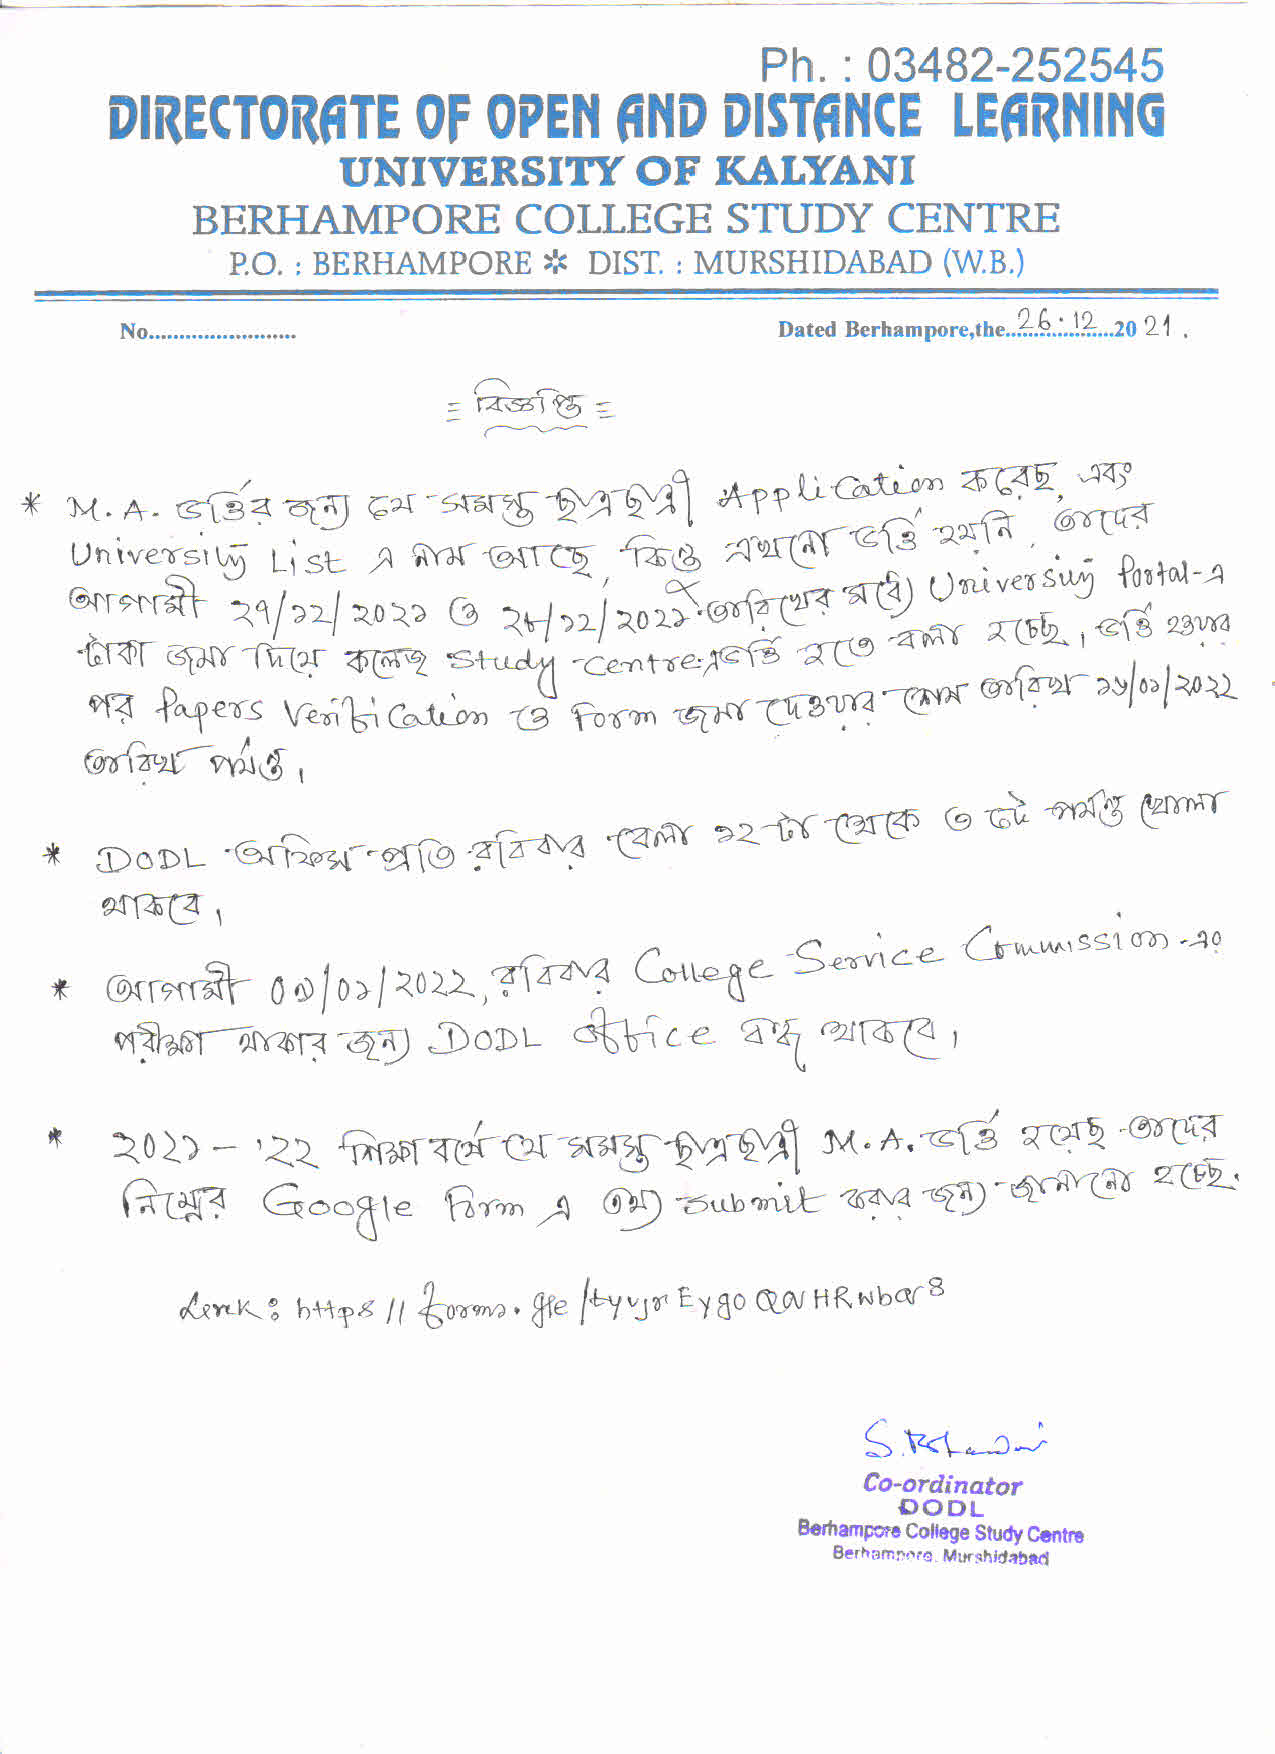 Ph. : 03482-252545
DIRECTORATE OF OPEN AND DISTANCE LEARNING
UNIVERSITY OF KALYANI
BERHAMPORE COLLEGE STUDY CENTRE
P.O. : BERHAMPORE ✻ DIST. : MURSHIDABAD (W.B.)
No........................
Dated Berhampore,the..26.12...2021.
= বিজ্ঞপ্তি =
* M.A. ভর্ত্তির জন্য যে সমস্ত ছাত্রছাত্রী Application করেছে, এবং
University List এ নাম আছে, কিন্তু এখনো ভর্ত্তি হয়নি, তাদের
আগামী ২৭/১২/২০২১ ও ২৮/১২/২০২১ তারিখের মধ্যে University Portal-এ
টাকা জমা দিয়ে কলেজ Study Centre এ ভর্ত্তি হতে বলা হচ্ছে। ভর্ত্তি হওয়ার
পর Papers Verification ও Form জমা দেওয়ার শেষ তারিখ ১৬/০১/২০২২
তারিখ পর্যন্ত।
* DODL অফিস প্রতি রবিবার বেলা ১২ টা থেকে ৩ টে পর্যন্ত খোলা
থাকবে।
* আগামী ০৯/০১/২০২২, রবিবার College Service Commission-এর
পরীক্ষা থাকার জন্য DODL office বন্ধ থাকবে।
* ২০২১-'২২ শিক্ষাবর্ষে যে সমস্ত ছাত্রছাত্রী M.A. ভর্ত্তি হয়েছে তাদের
নিম্নের Google Form এ তথ্য Submit করার জন্য জানানো হচ্ছে.
Link: https // forms.gle/tyvjr
Co-ordinator
DODL
Berhampore College Study Centre
Berhampore, Murshidabad